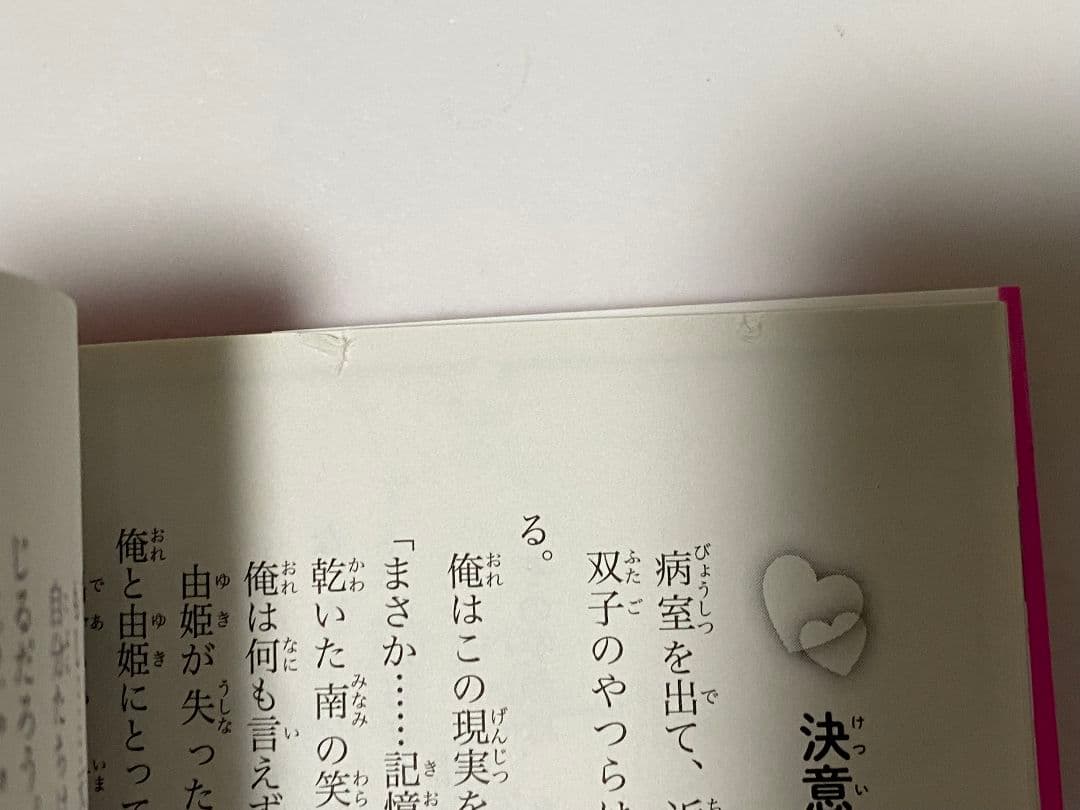 決意
病室を出て、
双子のやつらは
る。
俺はこの現実を
「まさか……記憶
乾いた南の笑
俺は何も言えず
由姫が失った
俺と由姫にとって
じるだろう